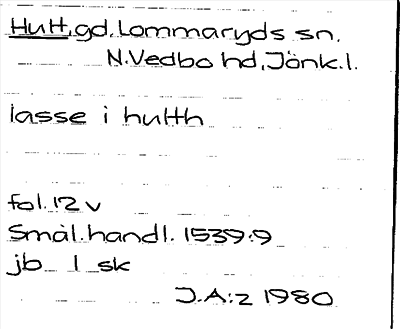 Hult, gd. Lommaryds sn.
N.Vedbo hd, Jönk.l.
lasse i hulth
fol. 12 v
Smål. handl. 1539:9
jb 1 sk
J.A:z 1980